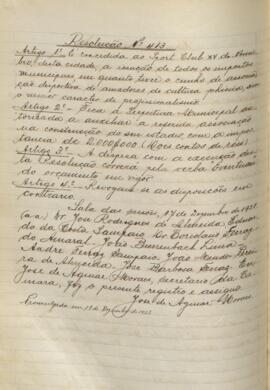 Resolução Nº 413
Artigo 1º É concedida ao Sport Club XV de Novem
bro, desta cidade, a isenção de todos os impostos
municipaes em quanto tiver o cunho de associa
ção desportiva de amadores de cultura physica, sem
o menor caracter de profissionalismo.
Artigo 2º Fica a Prefeitura Municipal au
torisada a auxiliar a referida associação
na construcção do seu stadio com a impor
tancia de 2.000$000 (Dois contos de réis)
Artigo 3º A despeza com a execução des
ta Resolução correrá pela verba Eventuaes
do orçamento em vigor.
Artigo 4º Revogam-se as disposições em
contrario.
Sala das sessões, 17 de Dezembro de 1928.
(a.a.) Dr. José Rodrigues de Almeida, Eduar
do da Costa Sampaio, Dr. Coriolano Ferraz
do Amaral, João Lima
Andre Ferraz Sampaio, João
ra de Almeida, José Barbosa Ferraz. Eu,
José de Aguiar Moraes, secretario da Ca
mara, fiz o presente registro e assigno
José de Aguiar Moraes
Promulgada em de Dezembro de 1928